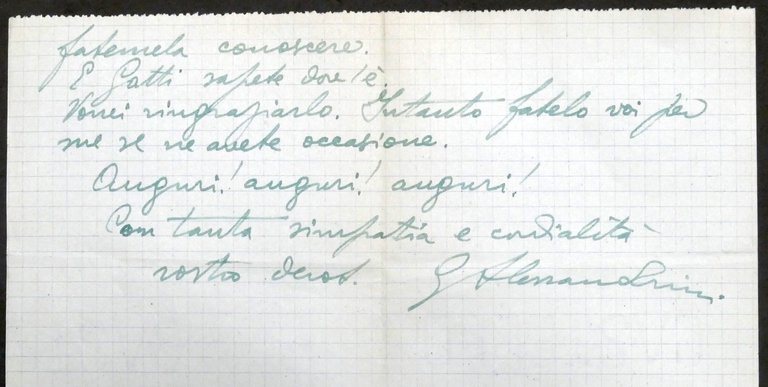 fatemela conoscere.
E Gatti sapete dov'è.
Vorrei ringraziarlo. Intanto fatelo voi per
me se ne avete occasione.
Auguri! auguri! auguri!
Con tanta simpatia e cordialità
vostro devot. G Alessandrini.